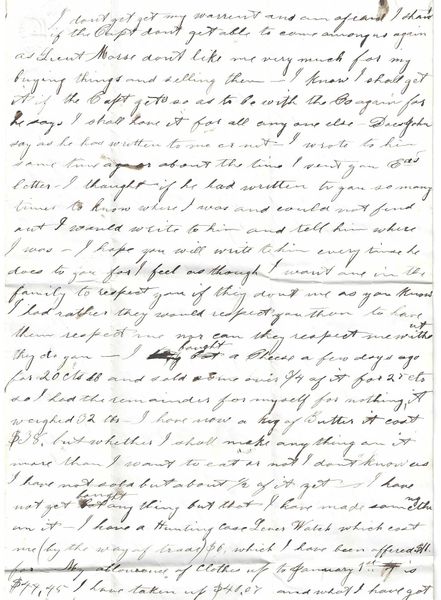 I dont get my warrent and am afeard I shant
if the Capt dont get able to come among us again
as Lieut Morse dont like me very much for my
buying things and selling them – I know I shall get
it if the Capt gets so as to be with the Co again for
he says I shall have it for all any one else – Does John
say as he has written to me or not – I wrote to him
some time ago or about the time I sent you
letter – I thought if he had written to you so many
times to know where I was and could not find
out I would write to him and tell him where
I was – I hope you will write to him every time he
does to you for I feel as though I want one in the
family to respect you if they dont me as you know
I had rather they would respect you than to have
them respect me nor can they respect me without
they do you – I bought a Cheese a few days ago
for 20 cts lb and sold some over 3/4 of it for 25 cts
so I had the remainder for myself for nothing, it
weighed 32 lbs – I have now a keg of Butter it cost
$38. but whether I shall make any thing on it
more than I want to eat or not I dont know as
I have not sold but about 1/2 of it yet – I have
not bought any thing but that I have made something
on it – I have a Hunting case Lever Watch which cost
me (by the way of trade) $6, which I have been offered $11.
for – My allowance of Clothes up to January 1st is
$44,45 I have taken up $40.07 and what I have got